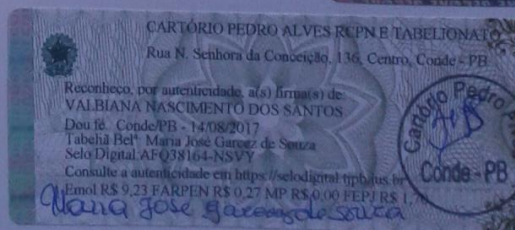 CARTÓRIO PEDRO ALVES RCPN E TABELIONATO
Rua N. Senhora da Conceição, 136, Centro, Conde - PB
Reconheço, por autenticidade, a(s) firma(s) de:
VALBIANA NASCIMENTO DOS SANTOS
Dou fé. Conde/PB - 14/08/2017
Tabeliã Belª Maria José Garcez de Souza
Selo Digital:AFQ38164-NSVY
Consulte a autenticidade em https://selodigital.tjpb.jus.br
Emol R$ 9,23 FARPEN R$ 0,27 MP R$ 0,00 FEPJ R$ 1,
Maria José Garcez de Souza
Cartório Pedro
Conde - PB